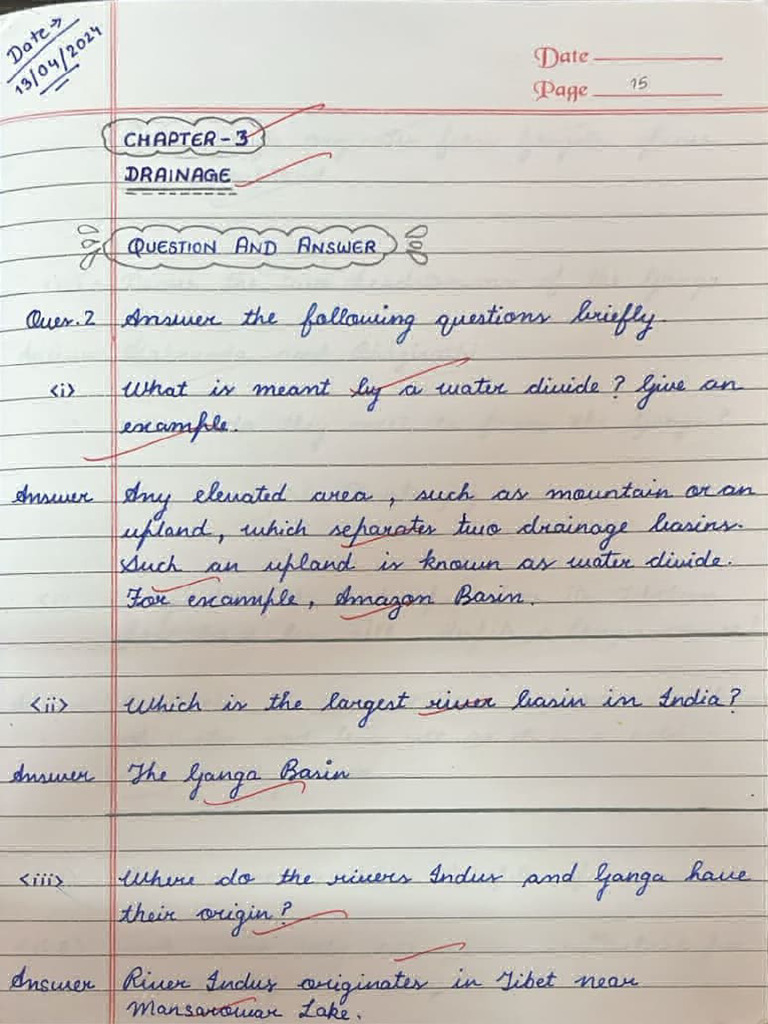 Date →
13/04/2024
Date
Page 15
CHAPTER-3
DRAINAGE
QUESTION AND ANSWER
Ques.2 Answer the following questions briefly.
<i> What is meant by a water divide? Give an
example.
Answer Any elevated area, such as mountain or an
upland, which separates two drainage basins.
Such an upland is known as water divide.
For example, Amazon Basin.
<ii> Which is the largest river basin in India?
Answer The Ganga Basin
<iii> Where do the rivers Indus and Ganga have
their origin?
Answer River Indus originates in Tibet near
Mansarowar Lake.